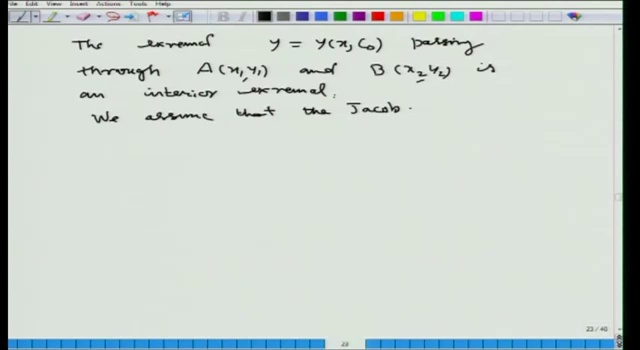 File Edit View Insert Actions Tools Help
The extremal y = y(x, C₀) passing
through A(x₁,y₁) and B(x₂,y₂) is
an interior extremal.
We assume that the Jacob.
23 / 40
23